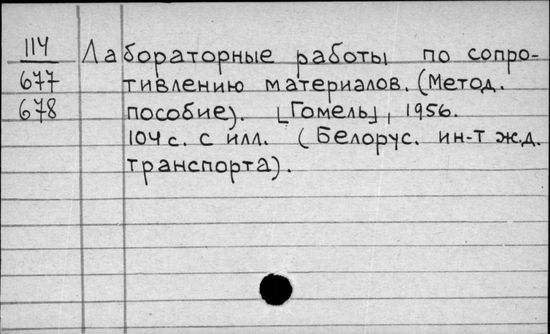 114
677
678
Лабораторные работы по сопро-
тивлению материалов. (Метод.
пособие). [Гомель], 1956.
104 с. с илл. (Белорус. ин-т ж.д.
транспорта).